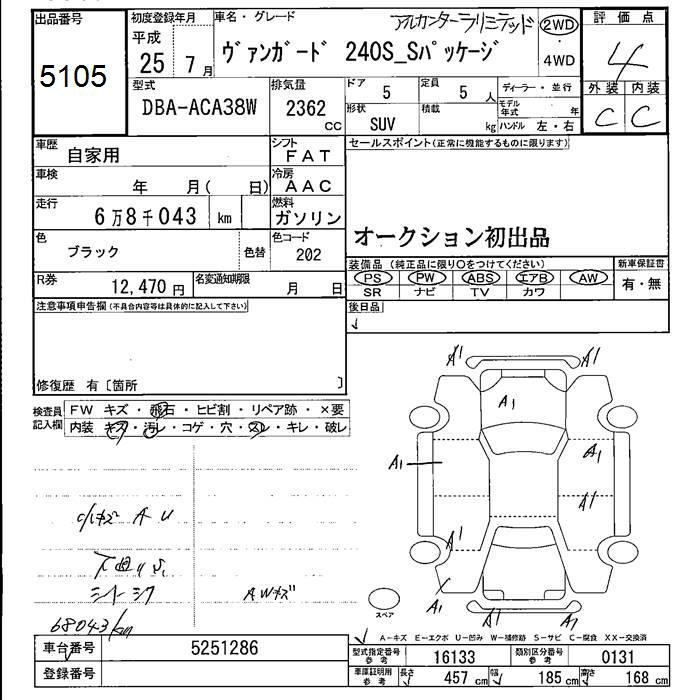 出品番号
5105
初度登録年月
平成
25 7月
車名・グレード
アルカンターラリミテッド
ヴァンガード 240S_Sパッケージ
2WD
・
4WD
評価点
4
型式
DBA-ACA38W
排気量
2362
CC
ドア 5
定員 5 人
形状
SUV
積載
kg
ディーラー・並行
モデル年式 年
ハンドル 左・右
外装 内装
C C
車歴
自家用
シフト
FAT
セールスポイント(正常に機能するものに限ります)
車検
年 月( 日)
冷房
AAC
走行
6万8千043 km
燃料
ガソリン
オークション初出品
色
ブラック
色替
色コード
202
装備品(純正品に限り○をつけてください)
新車保証書
PS PW ABS エアB AW
有・無
SR ナビ TV カワ
R券
12,470円
名変通知期限
月 日
後日品
注意事項申告欄(不具合内容等は具体的に記入して下さい)
修復歴 有〔箇所 〕
検査員
記入欄
FW キズ・飛石・ヒビ割・リペア跡・×要
内装 キズ・汚レ・コゲ・穴・スレ・キレ・破レ
A1 A1
A1
A1 A1
A1
A1
A1 A1 A1
A U
下廻りS
シートシワ
AWキズ
68043km
スペア
A-キズ E-エクボ U-凹み W-補修跡 S-サビ C-腐食 XX-交換済
車台番号
5251286
登録番号
型式指定番号
参考
16133
類別区分番号
参考
0131
車庫証明用
参考
長さ 457 cm
幅 185 cm
高さ 168 cm